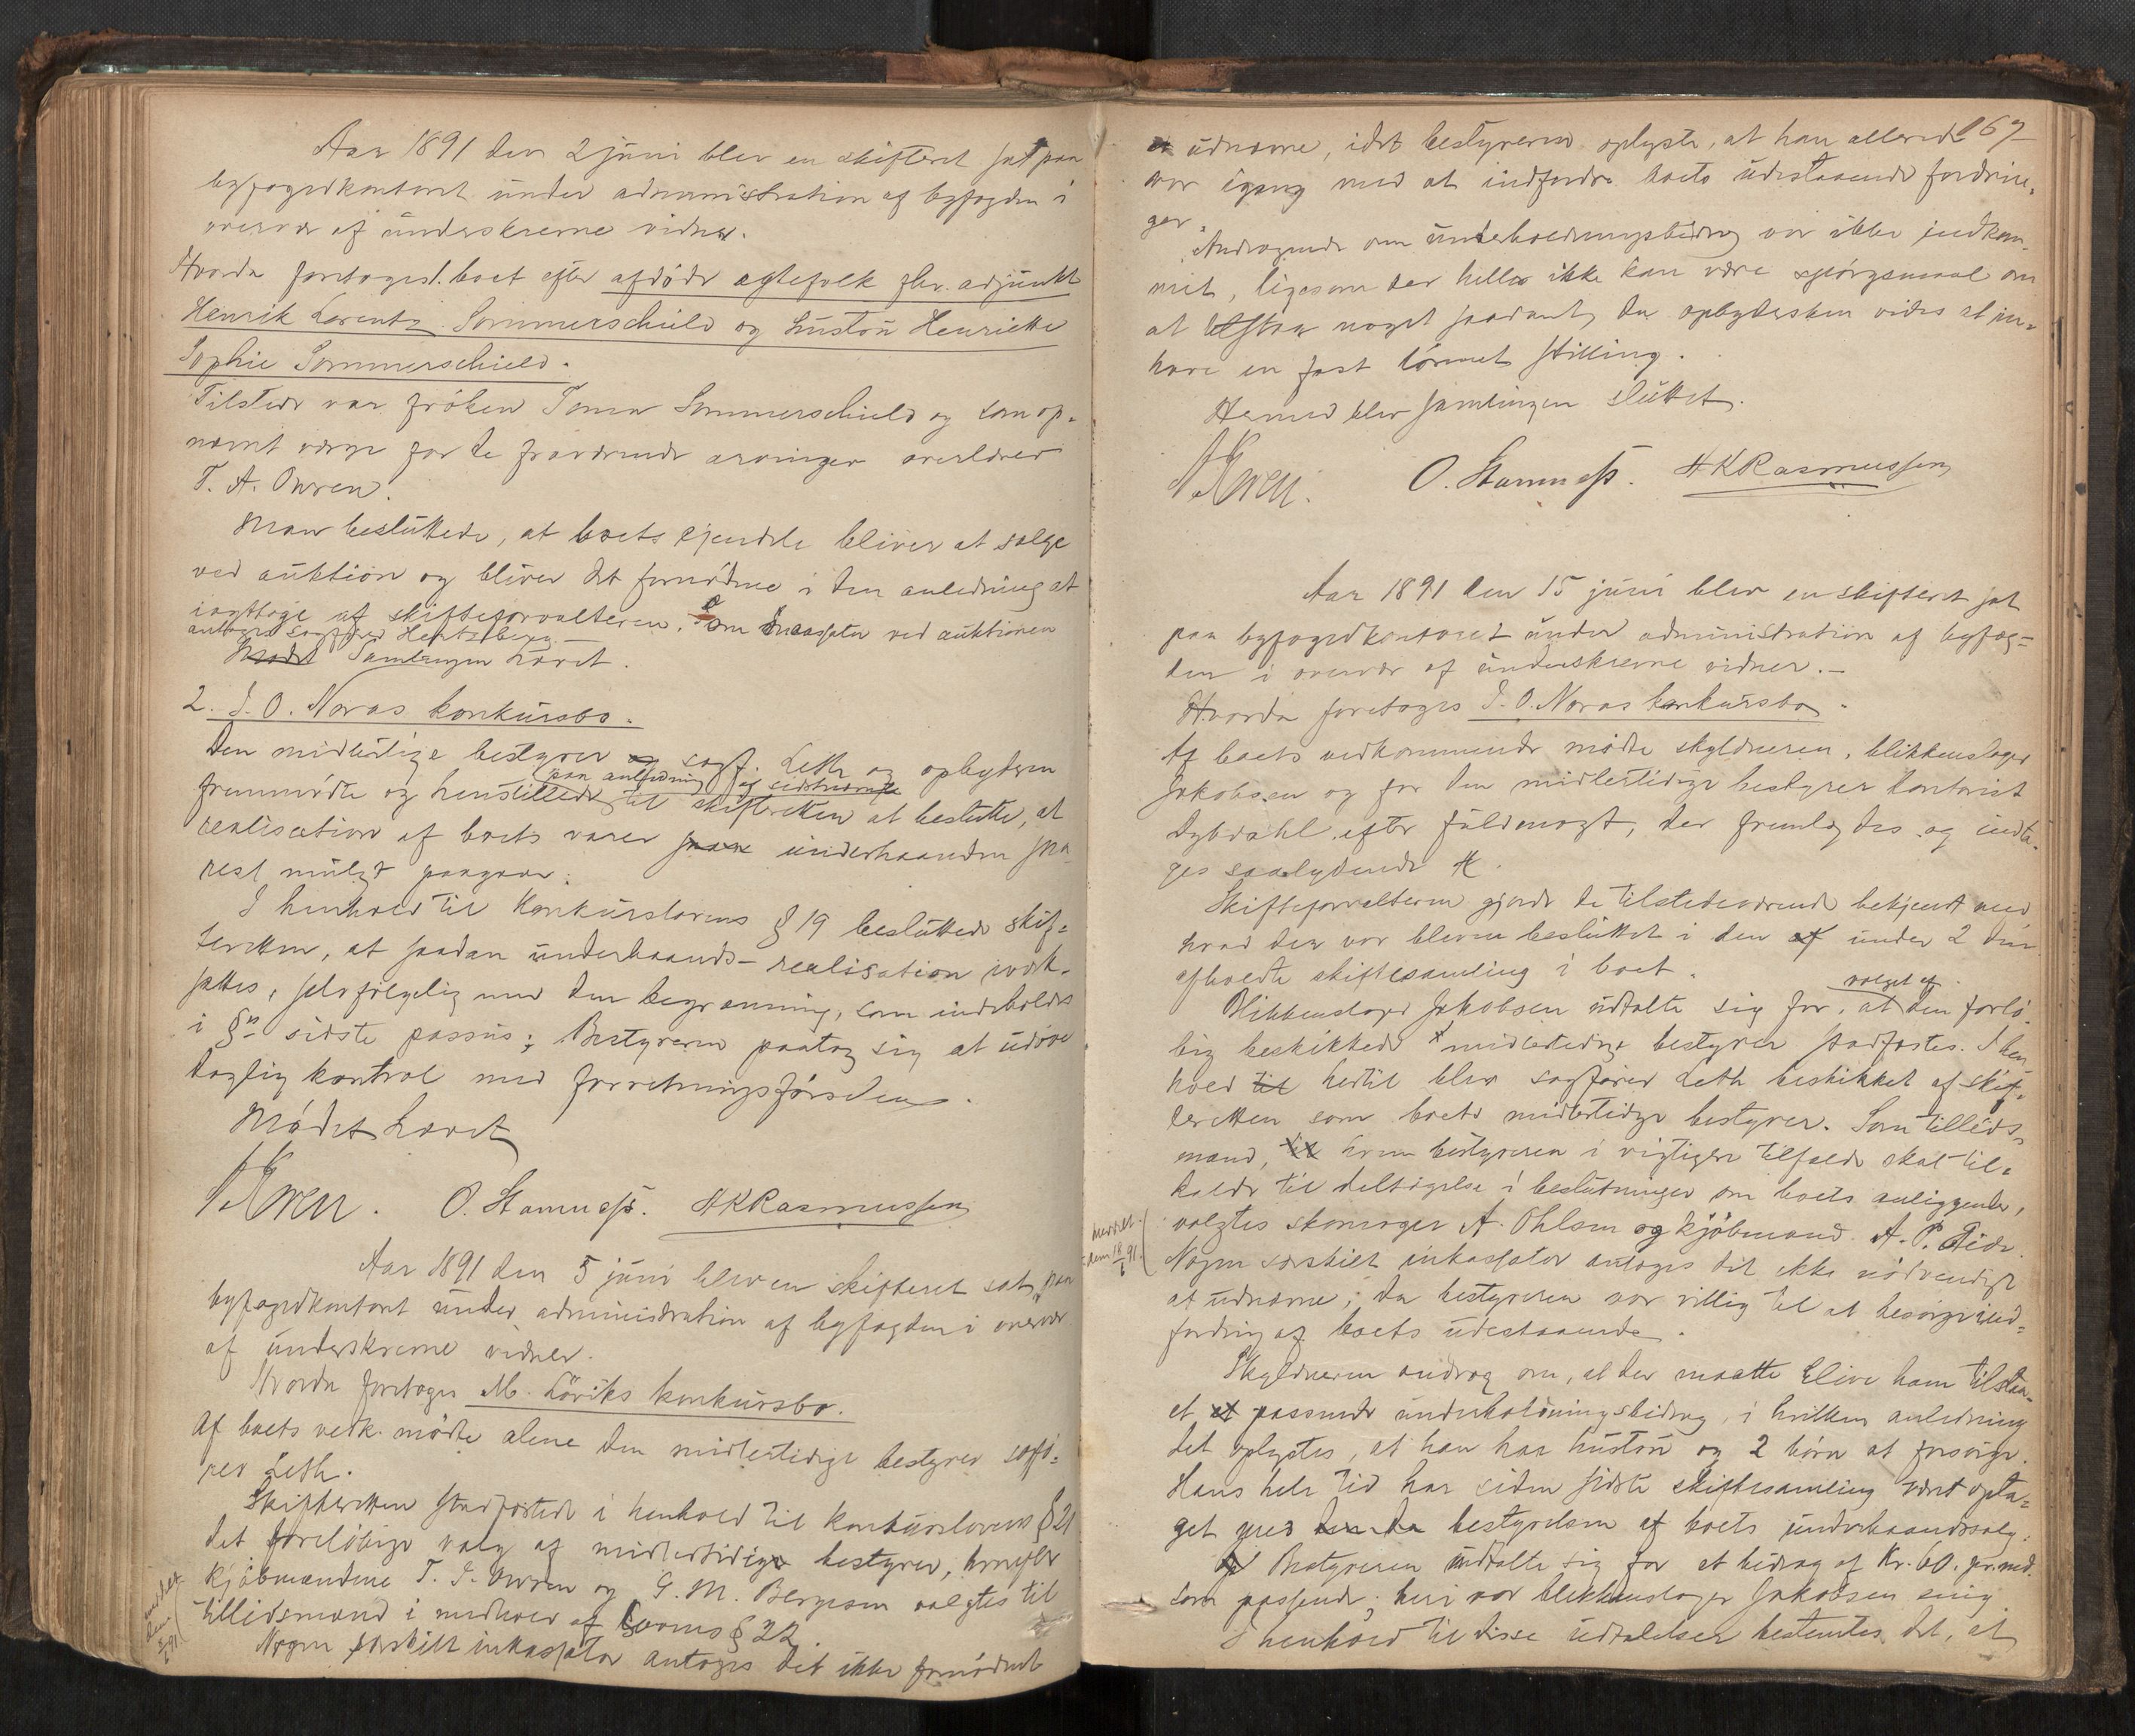 Aar 1891 den 2 juni blev en skifteret sat paa
byfogedkontoret under administration af byfogden i
overvær af underskrevne vidner.
Hvorda foretoges 1. boet efter afdöde egtefolk fhv. adjunkt
Henrik Lorentz Sommerschield og hustru Henriette
Sophie Sommerschield.
Tilstede var fröken Sommerschield og som op-
nævnt værge for de fraværende arvinger overlærer
T. A. Owren.
Man besluttede, at boets ejendele bliver at sælge
ved auktion og bliver det fornödne i den anledning at
iagttage af skifteforvalteren. Som inkassator ved auktionen
antoges sagförer Hertzberg.
Mödet Samlingen hævet.
2. J. O. Noras konkursbo.
Den midlertidige bestyrer og sagf. Leth og opbyderen
fremmödte og henstillede paa anledning af sidstnævnte til skifteretten at beslutte, at
realisation af boets varer underhaanden sna-
rest muligt paagaar.
I henhold til Konkurslovens § 19 besluttede skif-
teretten, at saadan underhaands-realisation iværk-
sættes, selvfölgelig med den begrænsning, som indeholdes
i §ns sidste passus; Bestyreren paatog sig at udöve
daglig kontrol med forretningsförselen.
Mödet hævet
O. Stamness. HKRasmussen
Aar 1891 den 5 juni blev en skifteret sat paa
byfogedkontoret under administration af byfogden i overvær
af underskrevne vidner.
Hvorda foretoges M. Löviks konkursbo.
Af boets vedk. mödte alene den midlertidige bestyrer sagfö-
rer Leth.
Skifteretten stadfæstede i henhold til konkurslovens § 21
det foreløbige valg af midlertidige bestyrer, hvorefter
kjöbmændene T. J. Owren og G. M. Bergesen valgtes til
tillidsmænd i medhold af lovens § 22.
Nogen særskilt inkassator antoges det ikke fornödent
167
at udnævne, idet bestyreren oplyste, at han allerede
var igang med at indfordre boets udestaaende fordrin-
ger.
Andragende om underholdningsbidrag var ikke indkom-
met, ligesom der heller ikke kan være spörgsmaal om
at tilstaa noget saadant, da opbyderen vides at in-
have en fast lönnet stilling.
Hermed blev samlingen sluttet.
O. Stamness. HKRasmussen
Aar 1891 den 15 juni blev en skifteret sat
paa byfogedkontoret under administration af byfog-
den i overvær af underskrevne vidner.-
Hvorda foretoges J. O. Noras konkursbo.
Af boets vedkommende mödte skyldneren, blikkenslager
Jakobsen og for den midlertidige bestyrer kontorist
Dybdahl efter fuldmagt, der fremlagdes og indta-
ges saalydende #.
Skifteforvalteren gjorde de tilstedeværende bekjendt med
hvad der var bleven besluttet i den af under 2 dns
afholdte skiftesamling i boet.
Blikkenslager Jakobsen udtalte sig for, at valget af den forlö-
big beskikkede midlertidige bestyrer stadfæstes. I hen-
hold til hertil blev sagförer Leth beskikket af skif-
teretten som boets midlertidige bestyrer. Som tillids-
mænd, til hvem bestyreren i vigtigere tilfælde skal til-
kalde til deltagelse i beslutninger om boets anliggender,
valgtes skomager A. Ohlsen og kjöbmand A. P. Tide.
Meddelt
den 18/6 91.
Nogen særskilt inkassator antoges det ikke nödvendigt
at udnævne, da bestyreren var villig til at besörge ind-
fordring af boets udestaaende.
Skyldneren androg om, at der maatte blive ham tilstaa-
et et passende underholdningsbidrag, i hvilken anledning
det oplystes, at han har hustru og 2 börn at forsörge.
Hans hele tid har siden sidste skiftesamling været opta-
get med den da bestyrelsen af boets underhaandssalg.
Bestyreren udtalte sig for et bidrag af Kr. 60. pr. md.
som passende; heri var blikkenslager Jakobsen enig.
I henhold til disse udtalelser bestemtes det, at